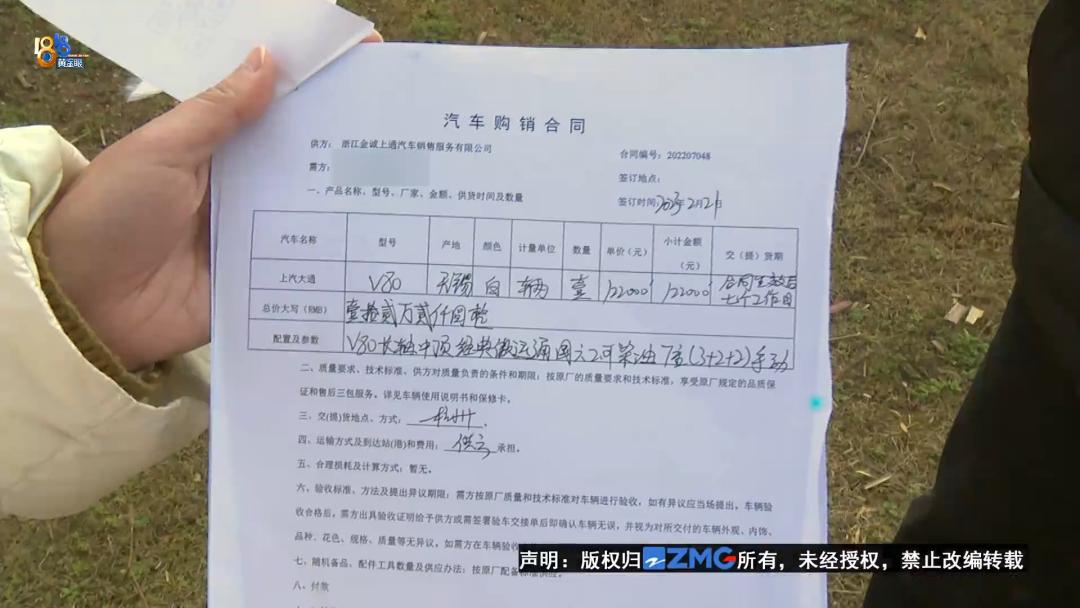 1818
黄金眼
汽车购销合同
供方：浙江金诚上通汽车销售服务有限公司
合同编号：202207048
需方：
签订地点：
一、产品名称、型号、厂家、金额、供货时间及数量
签订时间：2023年2月2日
汽车名称 型号 产地 颜色 计量单位 数量 单价（元） 小计金额（元） 交（提）货期
上汽大通 V80 无锡 白 辆 壹 122000 122000 合同生效后七个工作日
总价大写（RMB） 壹拾贰万贰仟圆整
配置及参数 V80长轴中顶经典傲运通国六2.0柴油7座(3+2+2)手动
二、质量要求、技术标准、供方对质量负责的条件和期限：按原厂的质量要求和技术标准，享受原厂规定的品质保
证和售后三包服务。详见车辆使用说明书和保修卡。
三、交(提)货地点、方式：杭州
四、运输方式及到达站(港)和费用：供方承担。
五、合理损耗及计算方式：暂无。
六、验收标准、方法及提出异议期限：需方按原厂质量和技术标准对车辆进行验收，如有异议应当场提出。车辆验
收合格后，需方出具验收证明给予供方或需签署验车交接单后即确认车辆无误，并视为对所交付的车辆外观、内饰、
品种、花色、规格、质量等无异议，如需方在车辆验收
七、随机备品、配件工具数量及供应办法：按原厂配备标准供应。
八、付款
声明：版权归ZMG所有，未经授权，禁止改编转载